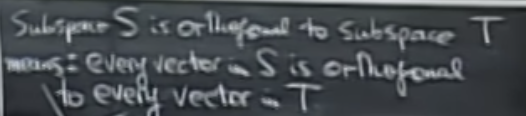 Subspace S is orthogonal to subspace T
means: every vector in S is orthogonal
to every vector in T